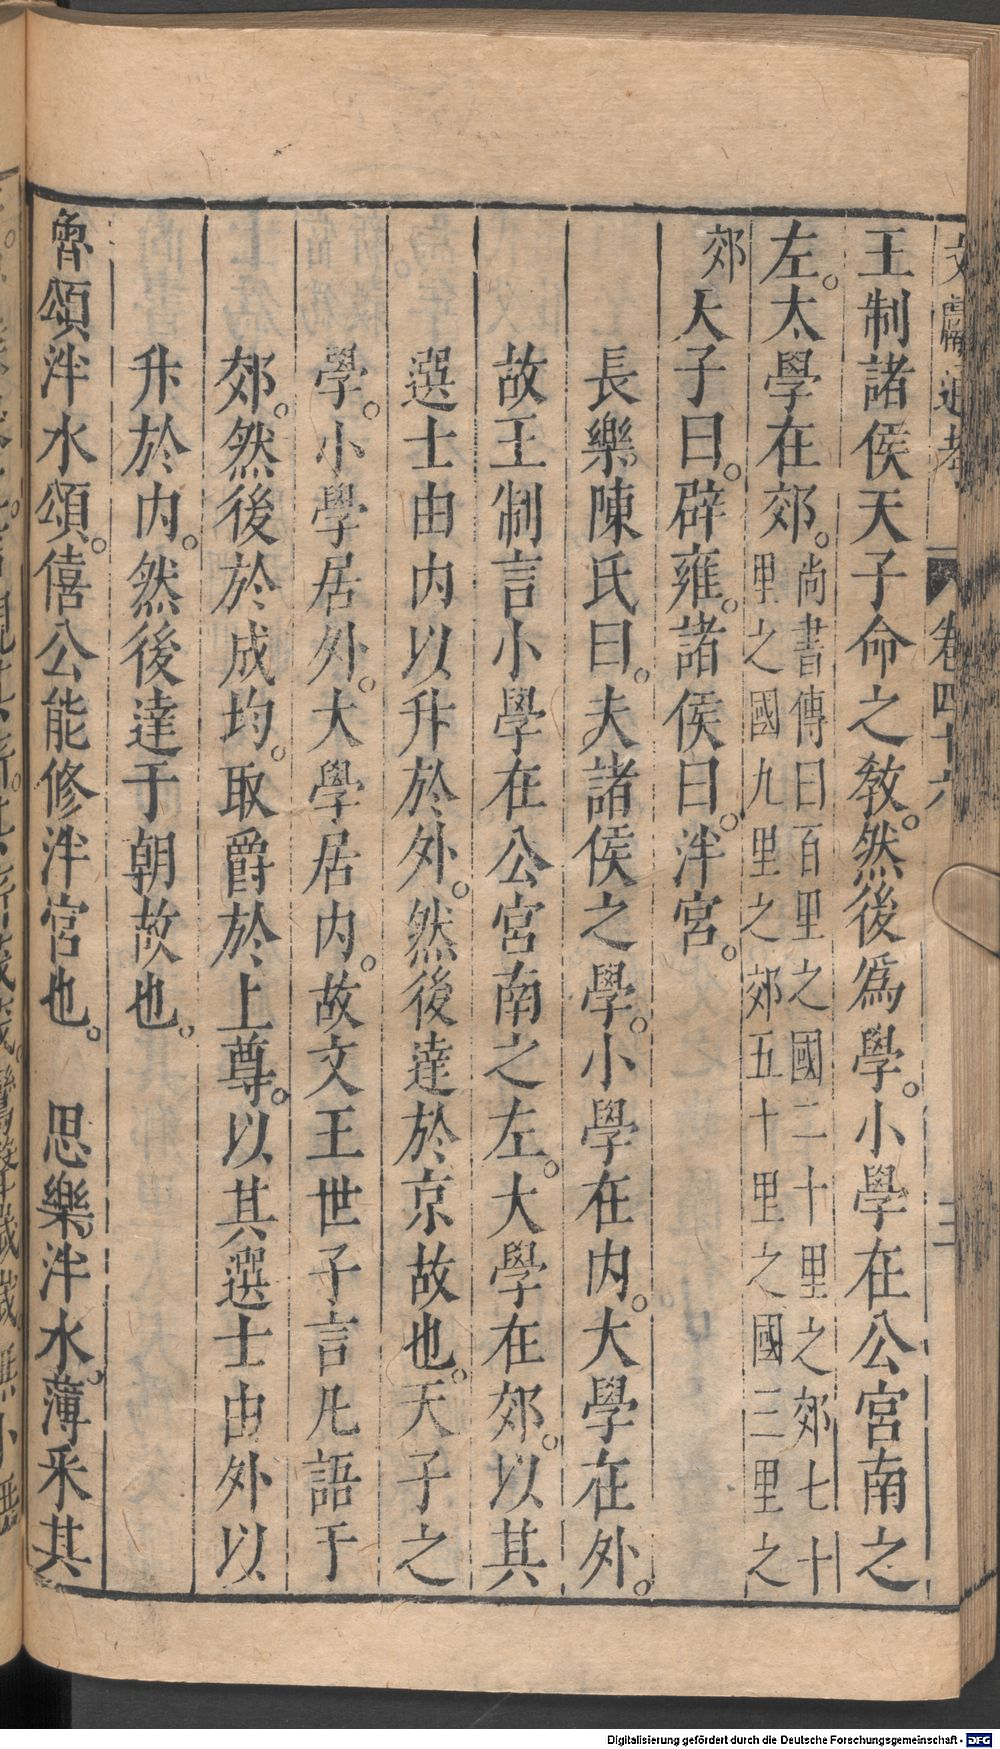 文獻通考 卷四十六 三
王制諸侯天子命之敎。然後爲學。小學在公宮南之
左。太學在郊。尚書傳曰百里之國二十里之郊七十
里之國九里之郊五十里之國三里之
郊 天子曰。辟雍。諸侯曰。泮宮。
長樂陳氏曰。夫諸侯之學。小學在內。大學在外。
故王制言小學在公宮南之左。大學在郊。以其
選士由內以升於外。然後達於京故也。天子之
學。小學居外。大學居內。故文王世子言凡語于
郊。然後於成均。取爵於上尊。以其選士由外以
升於內。然後達于朝故也。
魯頌泮水頌。僖公能修泮宮也。 思樂泮水。薄采其
Digitalisierung gefördert durch die Deutsche Forschungsgemeinschaft - DFG